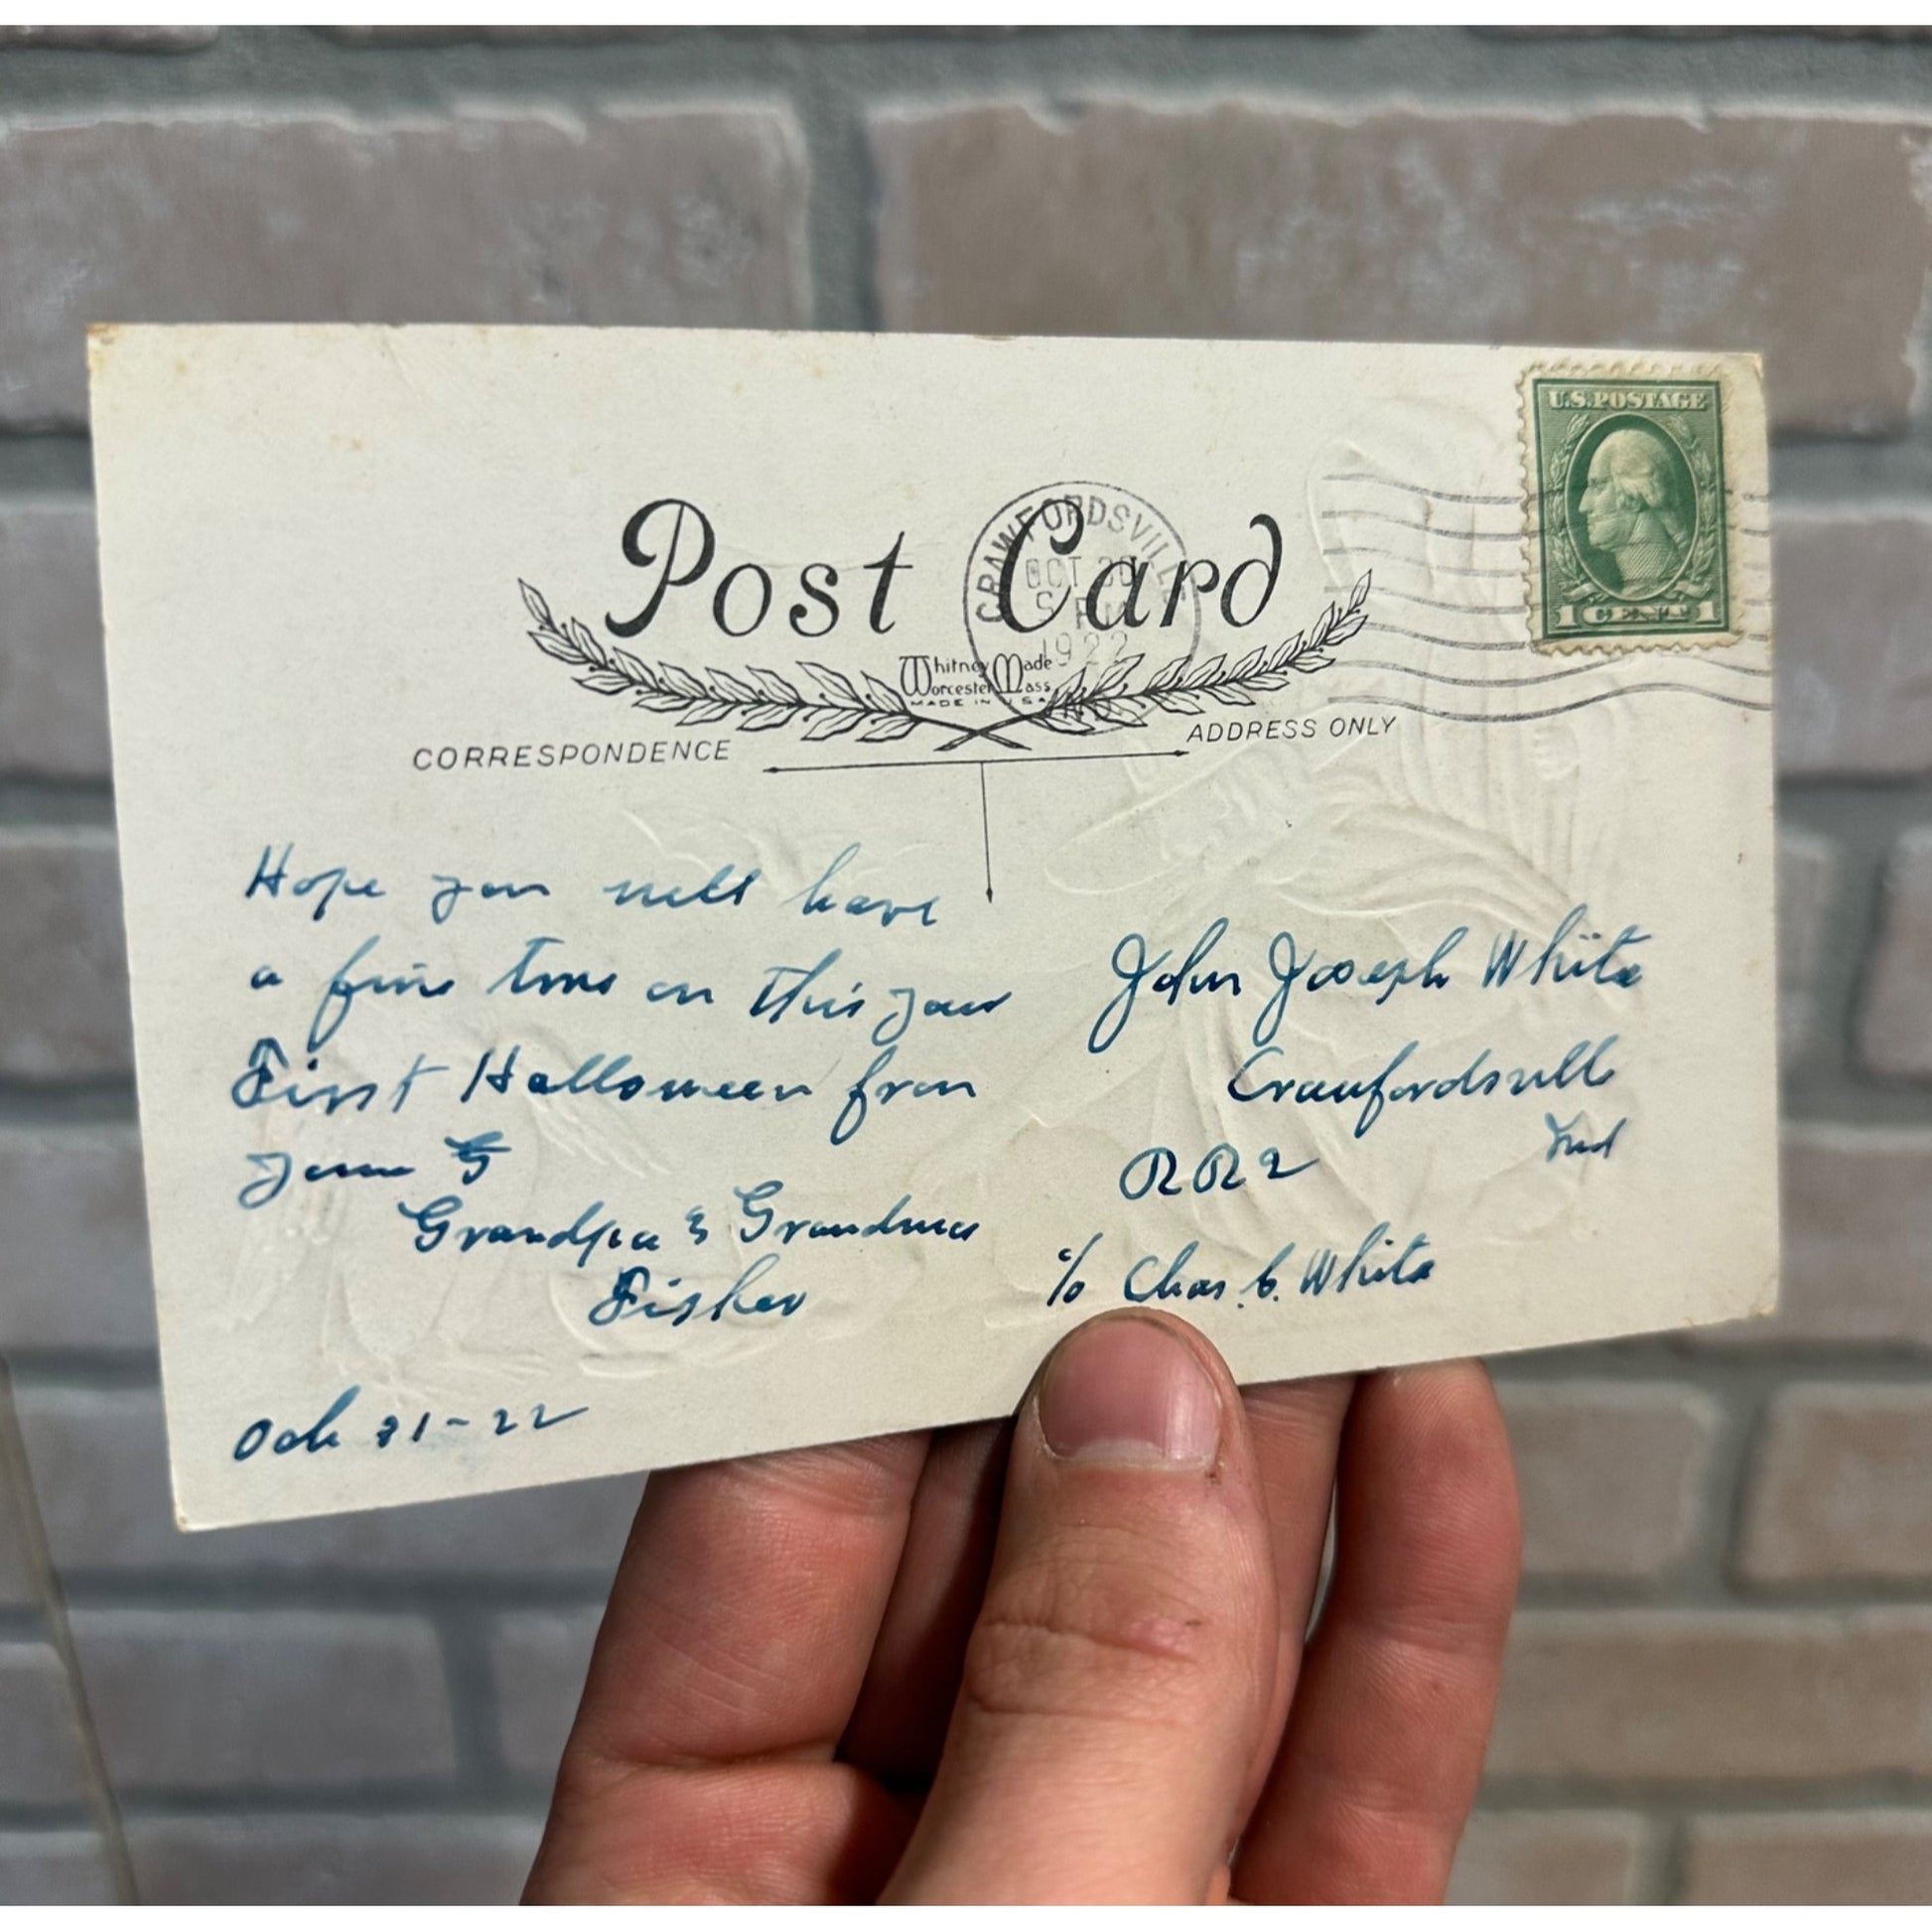 U.S. POSTAGE
1 1
Post Card
CRAWFORDSVILLE
OCT 30
5 PM
1922
IND.
Whitney Made
Worcester Mass
MADE IN U S A
CORRESPONDENCE
ADDRESS ONLY
Hope you will have
a fine time on this your
First Halloween from
Your G
Grandpa & Grandma
Fisher
Oct 31-22
John Joseph White
Crawfordsville
Ind
RR2
c/o Chas. C. White